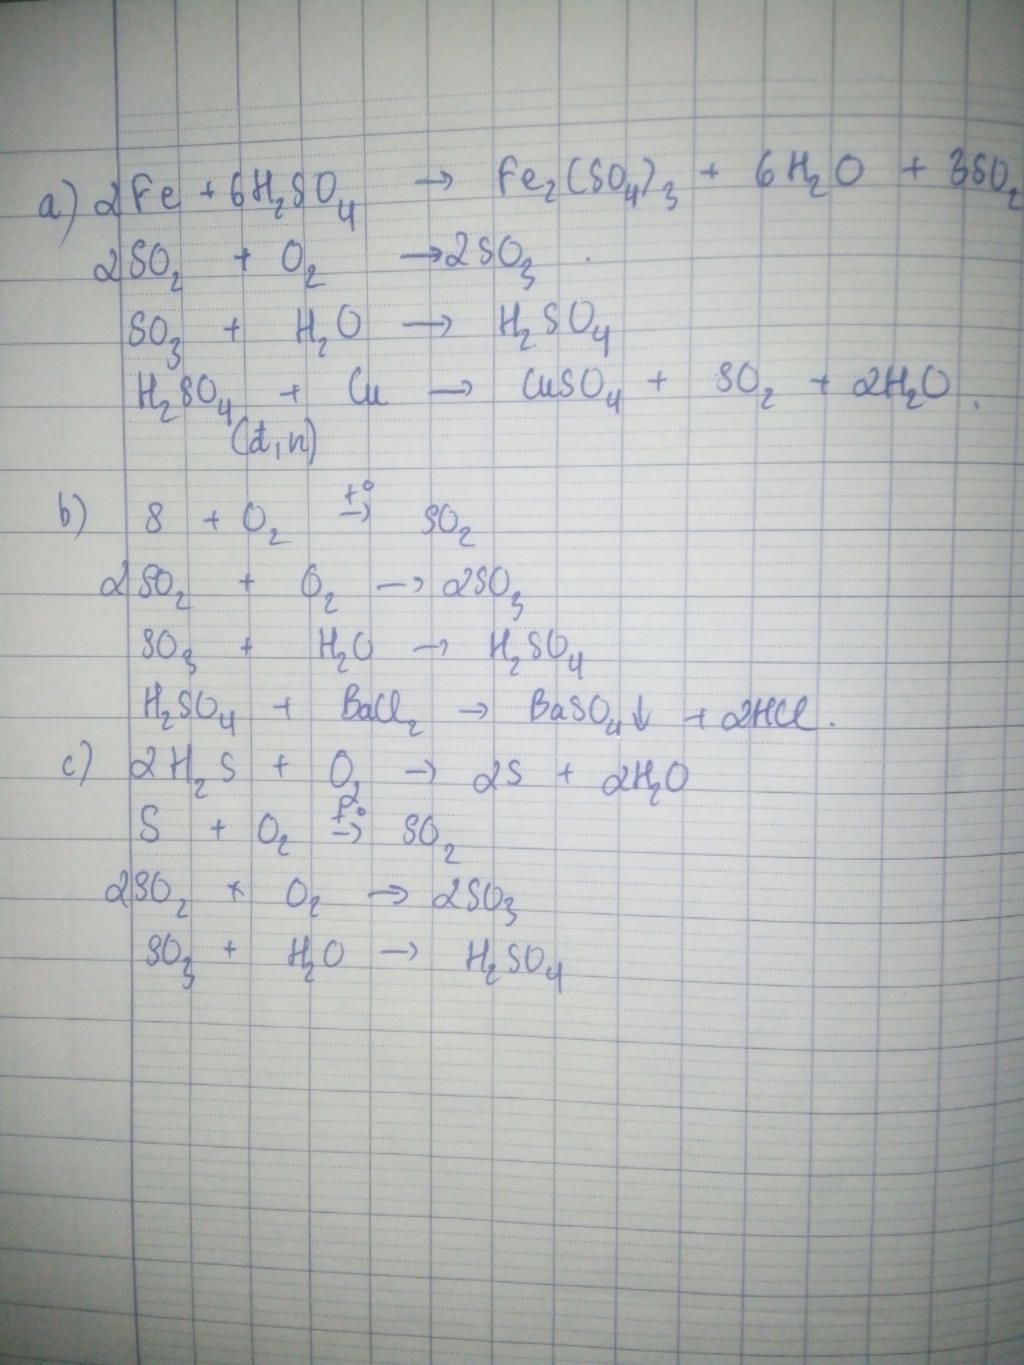 a) 2Fe + 6H₂SO₄ → Fe₂(SO₄)₃ + 6H₂O + 3SO₂
2SO₂ + O₂ → 2SO₃
SO₃ + H₂O → H₂SO₄
H₂SO₄ + Cu → CuSO₄ + SO₂ + 2H₂O.
(đ,n)
b) S + O₂ t°→ SO₂
2SO₂ + O₂ → 2SO₃
SO₃ + H₂O → H₂SO₄
H₂SO₄ + BaCl₂ → BaSO₄↓ + 2HCl.
c) 2H₂S + O₂ → 2S + 2H₂O
S + O₂ t°→ SO₂
2SO₂ + O₂ → 2SO₃
SO₃ + H₂O → H₂SO₄